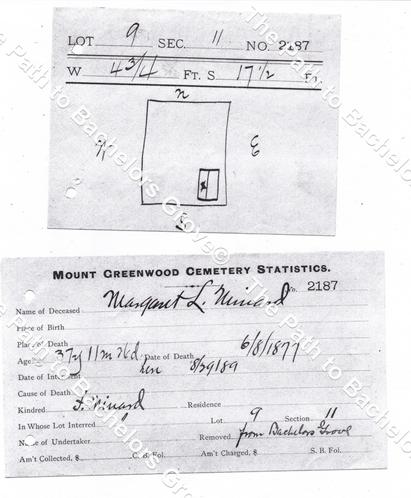 LOT 9 SEC. 11 NO. 2187
W 4 3/4 FT. S 17 1/2 FT.
n
W E
S
MOUNT GREENWOOD CEMETERY STATISTICS.
Margaret L. No. 2187
Name of Deceased
Place of Birth
Place of Death
Age 37y 11m 26d Date of Death 6/8/1877
Date of Interment 8/29/89
Cause of Death
Kindred Residence
In Whose Lot Interred Lot 9 Section 11
Name of Undertaker Removed from Bachelors Grove
Am't Collected, $ C. B. Fol. Am't Charged, $ S. B. Fol.
The Path to Bachelors Grove©